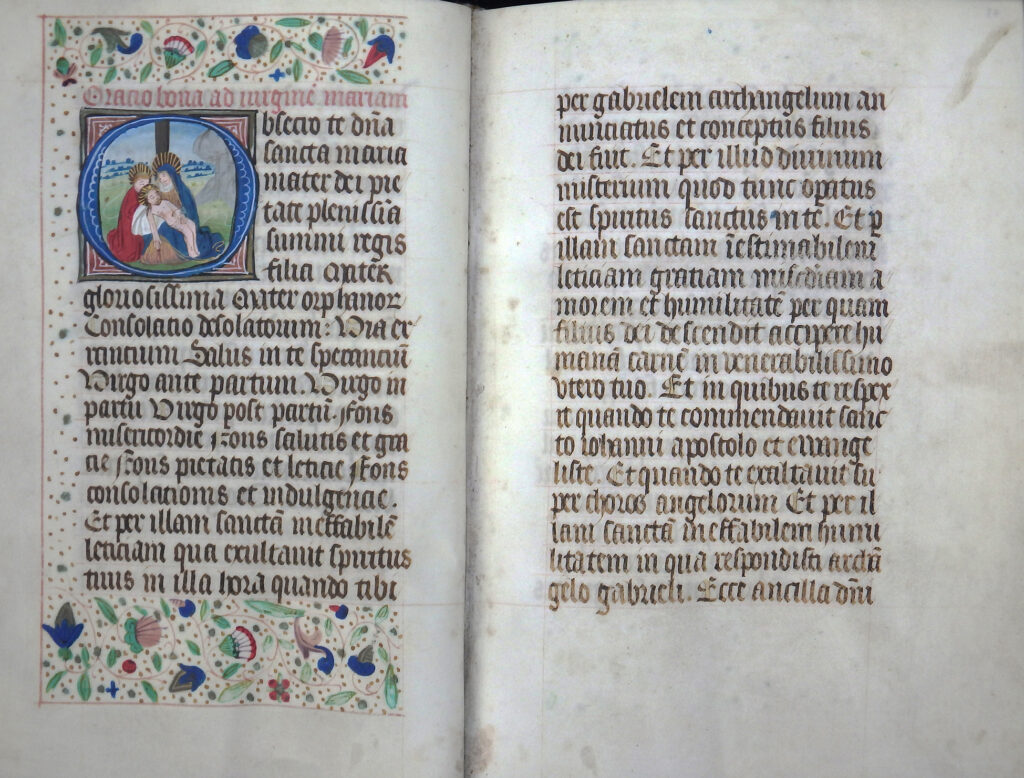 Oratio bona ad virginē mariam
Obsecro te dn̄a
sancta maria
mater dei pie
tate plenissīa
summi regis
filia Mater
gloriosissima Mater orphanoꝝ
Consolatio desolatorum: Via er
rantium Salus in te speranciū
Virgo ante partum. Virgo in
partu Virgo post partū. Fons
misericordie Fons salutis et gra
cie Fons pietatis et leticie Fons
consolationis et indulgencie.
Et per illam sanctā ineffabilē
leticiam qua exultauit spiritus
tuus in illa hora quando tibi
per gabrielem archangelum an
nunciatus et conceptus filius
dei fuit. Et per illud diuinum
misterium quod tunc oꝑatus
est spiritus sanctus in te. Et ꝑ
illam sanctam īestimabilem
leticiam gratiam mīsc̄diam a
morem et humilitatē per quam
filius dei descendit accipere hu
manā carnē in venerabilissimo
vtero tuo. Et in quibus te respex
it quando te commendauit sanc
to iohanni apostolo et ewange
liste. Et quando te exaltauit su
per choros angelorum Et per il
lam sanctā ineffabilem humi
litatem in qua respondisti archā
gelo gabrieli. Ecce ancilla dn̄i